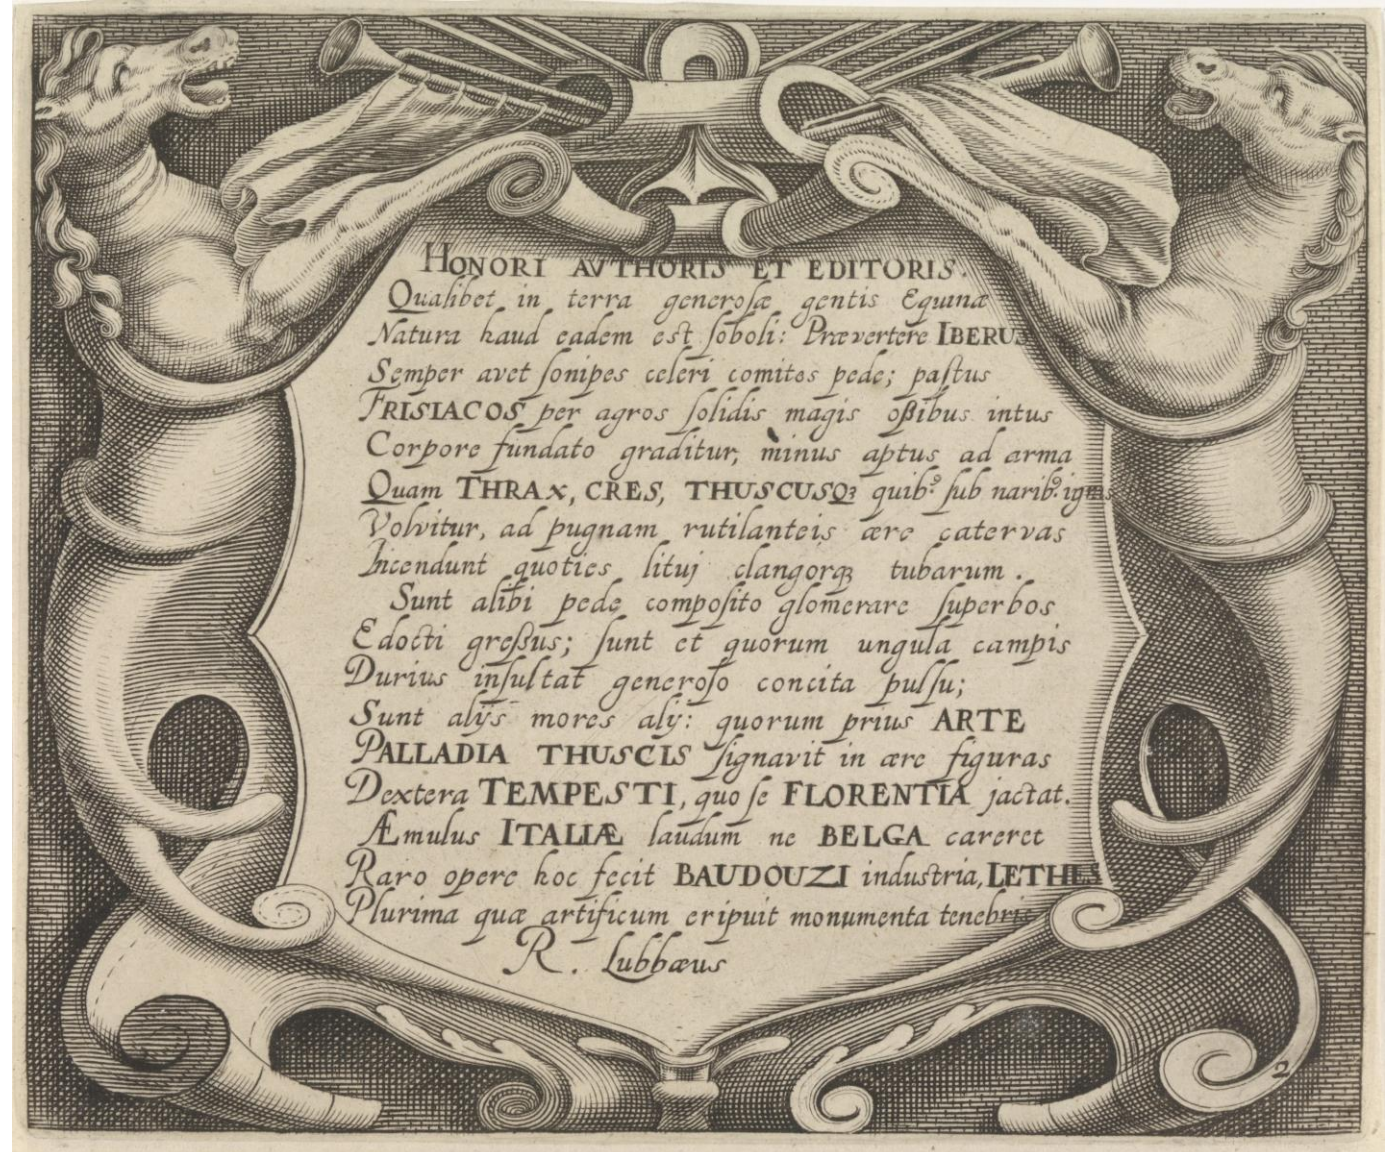 HONORI AVTHORIS ET EDITORIS.
Qualibet in terra generosæ gentis Equinæ
Natura haud eadem est soboli: Prævertere IBERUS
Semper avet sonipes celeri comites pede; pastus
FRISIACOS per agros solidis magis oßibus intus
Corpore fundato graditur, minus aptus ad arma
Quam THRAX, CRES, THUSCUSQꝫ quibꝰ sub naribꝰ ignis
Volvitur, ad pugnam rutilanteis ære catervas
Incendunt quoties lituj clangorqꝫ tubarum.
Sunt alibi pede composito glomerare superbos
Edocti greßus; sunt et quorum ungula campis
Durius insultat generoso concita pulsu;
Sunt alijs mores alij: quorum prius ARTE
PALLADIA THUSCIS signavit in ære figuras
Dextera TEMPESTI, quo se FLORENTIA jactat.
Æmulus ITALIÆ laudum ne BELGA careret
Raro opere hoc fecit BAUDOUZI industria, LETHES
Plurima quæ artificum eripuit monumenta tenebris
R. Lubbæus
2